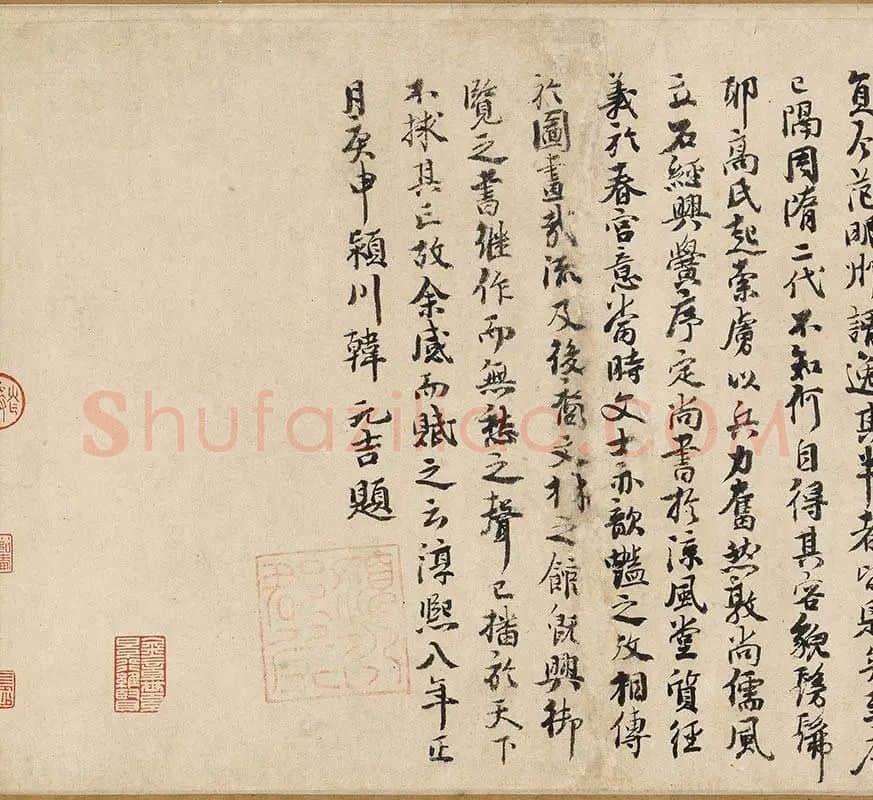 今范明州謂逸其半者皆是
已隔周隋二代不知何自得其容貌髣髴
耶高氏起索虜以兵力奮然敦尚儒風
立石經興黌序定尚書於涼風堂質經
義於春宮意當時文士亦歆豔之故相傳
於圖畫哉流及後裔文林之館既興御
覽之書繼作而無愁之聲已播於天下
不捄其亡故余感而賦之云淳熙八年正
月庚申潁川韓元吉題
Shufaziliao.com